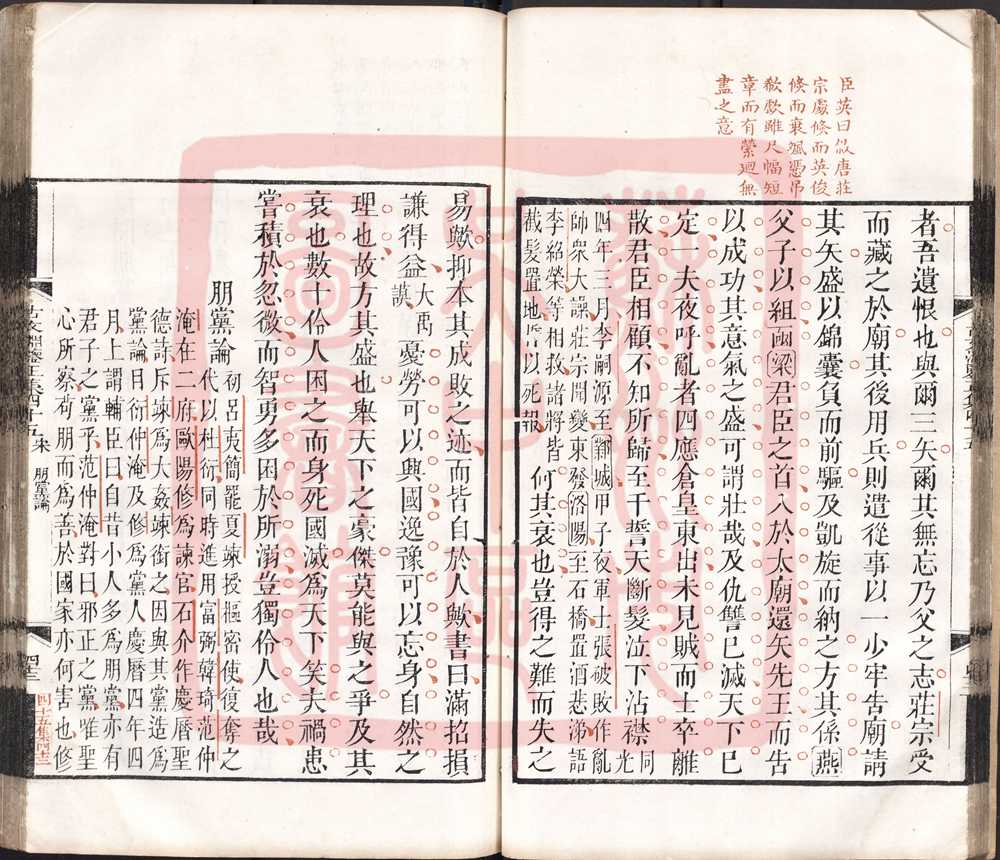 臣英曰敘唐莊
宗處倏而英俊
倏而衰颯憑弔
欷歔雖尺幅短
章而有縈迴無
盡之意
者吾遺恨也與爾三矢爾其無忘乃父之志莊宗受
而藏之於廟其後用兵則遣從事以一少牢告廟請
其矢盛以錦囊負而前驅及凱旋而納之方其係燕
父子以組函梁君臣之首入於太廟還矢先王而告
以成功其意氣之盛可謂壯哉及仇讐已滅天下已
定一夫夜呼亂者四應倉皇東出未見賊而士卒離
散君臣相顧不知所歸至于誓天斷髮泣下沾襟同光
四年三月李嗣源至鄴城甲子夜軍士張破敗作亂
師衆大譟莊宗聞變東發洛陽至石橋置酒悲涕語
李紹榮等相救諸將皆
截髮置地誓以死報
何其衰也豈得之難而失之
易歟抑本其成敗之迹而皆自於人歟書曰滿招損
謙得益大禹謨憂勞可以興國逸豫可以忘身自然之
理也故方其盛也舉天下之豪傑莫能與之爭及其
衰也數十伶人困之而身死國滅爲天下笑夫禍患
嘗積於忽微而智勇多困於所溺豈獨伶人也哉
朋黨論
初呂夷簡罷夏竦授樞密使復奪之
代以杜衍同時進用富弼韓琦范仲
淹在二府歐陽修爲諫官石介作慶曆聖
德詩斥竦爲大姦竦銜之因與其黨造爲
黨論目衍仲淹及修爲黨人慶曆四年四
月上謂輔臣曰自昔小人多爲朋黨亦有
君子之黨乎范仲淹對曰邪正之黨唯聖
心所察苟朋而爲善於國家亦何害也修
朋黨論